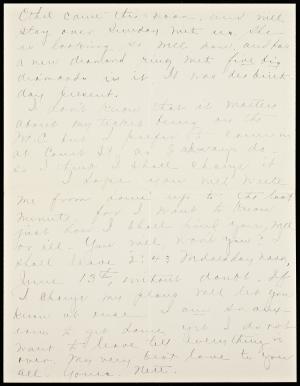 Ethel came this noon, and will
stay over Sunday with us. She
is looking so well now, and has
a new diamond ring with five big
diamonds in it. It was her birth-
day present.
I don't know that it matters
about my ticket being on the
M.C. but I prefer to come in
at Court St. as I always do.
so I think I shall change it.
I hope you will write
me from down up to the last
minute. for I want to know
just how I shall find you, well
or ill. You will, won't you? I
shall leave 2:43 Wednesday noon,
June 13th, without doubt. If
I change my plans will let you
know at once. I am so anx-
ious to get down, yet I do not
want to leave till everything is
over. My very best love to you
all. Yours. Nell.